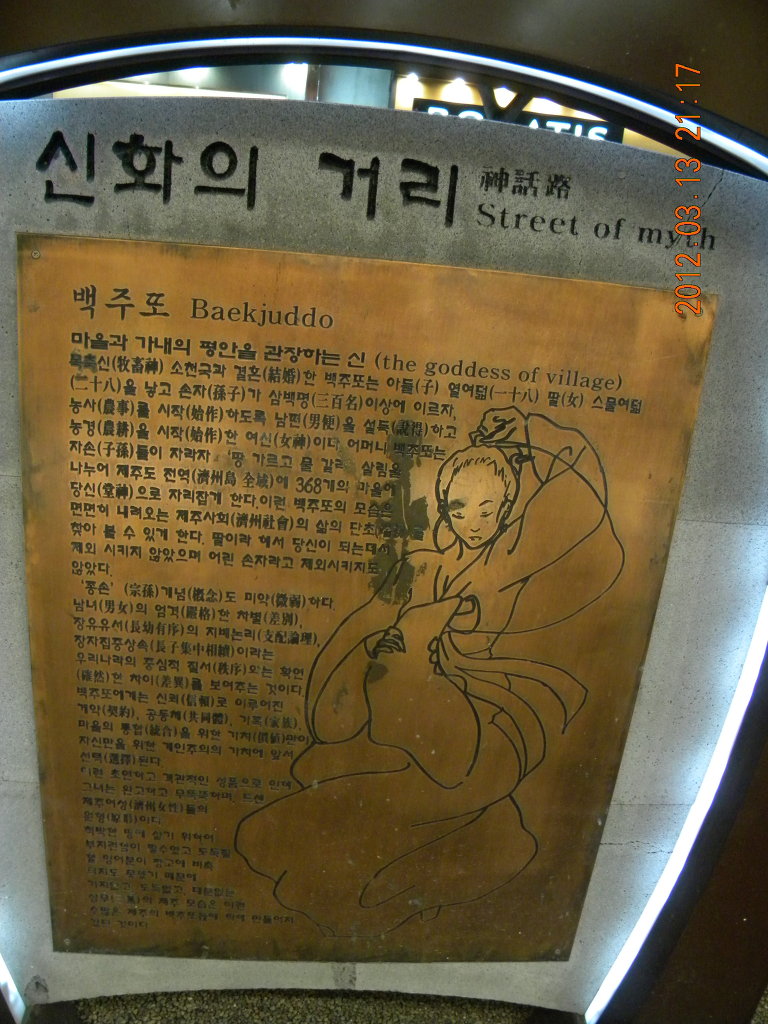 신화의 거리 神話路
Street of myth
2012.03.13 21:17
백주또 Baekjuddo
마을과 가내의 평안을 관장하는 신 (the goddess of village)
목축신(牧畜神) 소천국과 결혼(結婚)한 백주또는 아들(子) 열여덟(一十八) 딸(女) 스물여덟
(二十八)을 낳고 손자(孫子)가 삼백명(三百名)이상에 이르자,
농사(農事)를 시작(始作)하도록 남편(男便)을 설득(說得)하고
농경(農耕)을 시작(始作)한 여신(女神)이다. 어머니 백주또는
자손(子孫)들이 자라자 '땅 가르고 물 갈라' 살림을
나누어 제주도 전역(濟州島 全域)에 368개의 마을에
당신(堂神)으로 자리잡게 한다.이런 백주또의 모습은
면면히 내려오는 제주사회(濟州社會)의 삶의 단초
찾아 볼 수 있게 한다. 딸이라 해서 당신이 되는데서
제외 시키지 않았으며 어린 손자라고 제외시키지도
않았다.
'종손' (宗孫)개념(槪念)도 미약(微弱)하다.
남녀(男女)의 엄격(嚴格)한 차별(差別),
장유유서(長幼有序)의 지배논리(支配論理),
장자집중상속(長子集中相續)이라는
우리나라의 중심적 질서(秩序)와는 확연
(確然)한 차이(差異)를 보여주는 것이다.
백주또에게는 신뢰(信賴)로 이루어진
계약(契約), 공동체(共同體), 가족(家族),
마을의 통합(統合)을 위한 가치(價値)만이
자신만을 위한 개인주의의 가치에 앞서
선택(選擇)된다.
이런 초연하고 객관적인 성품으로 인해
그녀는 완고하고 무뚝뚝하며, 드센
제주여성(濟州女性)들의
원형(原形)이다.
척박한 땅에 살기 위하여
부지런함이 필수였고 도둑질
할 잉여분이 창고에 비축
되지도 못했기 때문에
거지없고, 도둑없고, 대문없는
삼무(三無)의 제주 모습은 이런
수많은 제주의 백주또들에 의해 만들어지